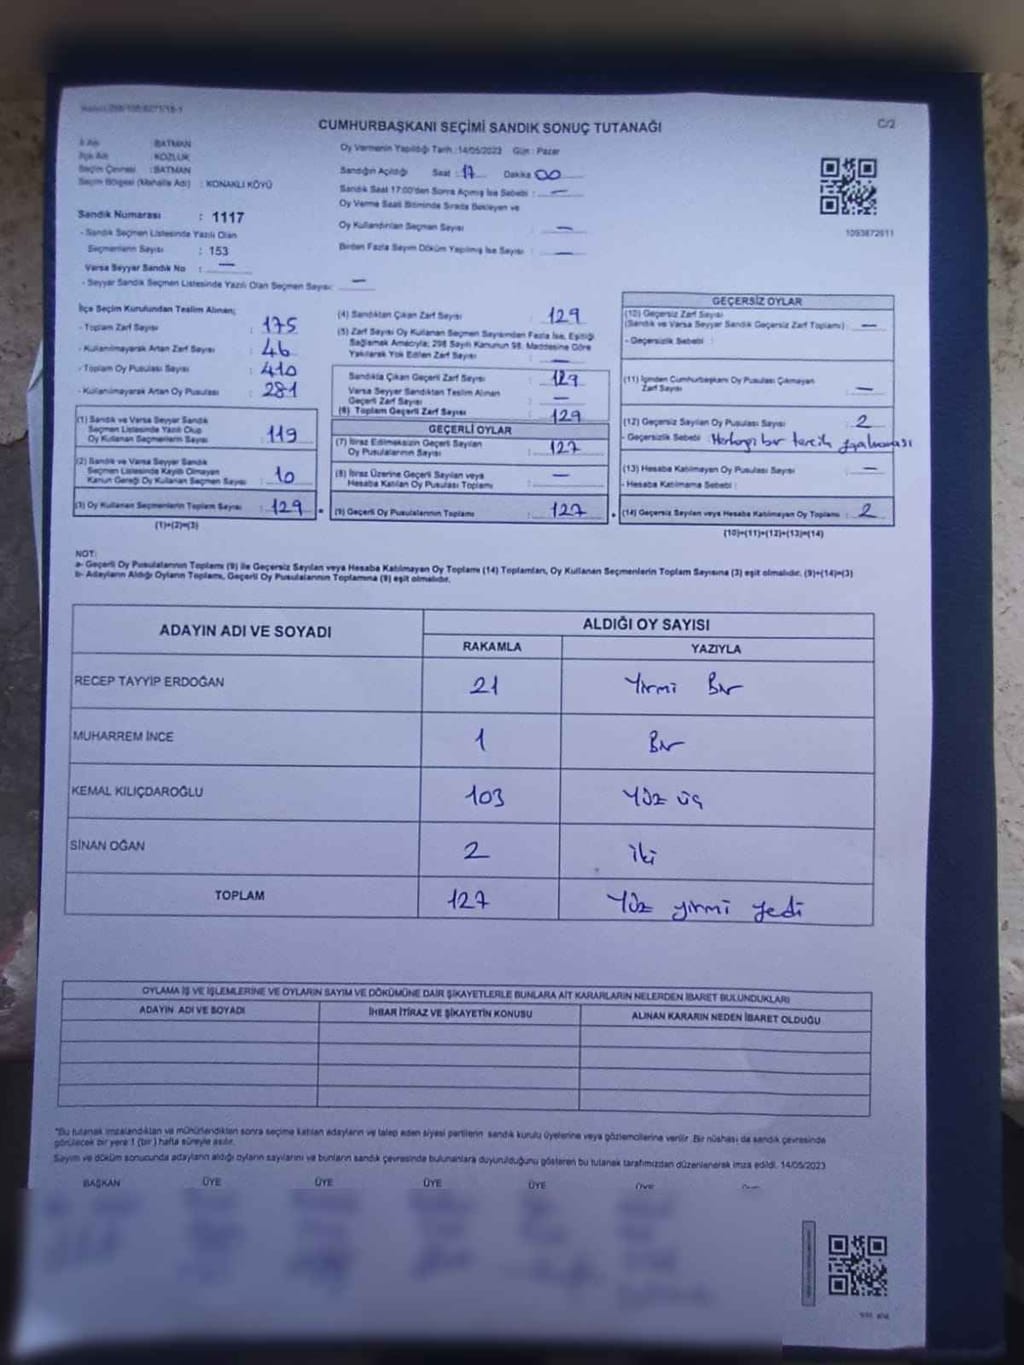 C/2
CUMHURBAŞKANI SEÇİMİ SANDIK SONUÇ TUTANAĞI
İl Adı : BATMAN
İlçe Adı : KOZLUK
Seçim Çevresi : BATMAN
Seçim Bölgesi (Mahalle Adı) : KONAKLI KÖYÜ
Sandık Numarası : 1117
- Sandık Seçmen Listesinde Yazılı Olan
Seçmenlerin Sayısı : 153
Varsa Seyyar Sandık No : —
- Seyyar Sandık Seçmen Listesinde Yazılı Olan Seçmen Sayısı: —
Oy Vermenin Yapıldığı Tarih :14/05/2023 Gün : Pazar
Sandığın Açıldığı Saat : 17 Dakika 00
Sandık Saat 17:00'den Sonra Açılmış İse Sebebi : —
Oy Verme Saati Bitiminde Sırada Bekleyen ve
Oy Kullandırılan Seçmen Sayısı : —
Birden Fazla Sayım Döküm Yapılmış İse Sayısı : —
1093872611
İlçe Seçim Kurulundan Teslim Alınan;
- Toplam Zarf Sayısı : 175
- Kullanılmayarak Artan Zarf Sayısı : 46
- Toplam Oy Pusulası Sayısı : 410
- Kullanılmayarak Artan Oy Pusulası : 281
(1) Sandık ve Varsa Seyyar Sandık
Seçmen Listesinde Yazılı Olup
Oy Kullanan Seçmenlerin Sayısı : 119
(2) Sandık ve Varsa Seyyar Sandık
Seçmen Listesinde Kayıtlı Olmayan
Kanun Gereği Oy Kullanan Seçmen Sayısı : 10
(3) Oy Kullanan Seçmenlerin Toplam Sayısı : 129
(1)+(2)=(3)
(4) Sandıktan Çıkan Zarf Sayısı : 129
(5) Zarf Sayısı Oy Kullanan Seçmen Sayısından Fazla İse, Eşitliği
Sağlamak Amacıyla; 298 Sayılı Kanunun 98. Maddesine Göre
Yakılarak Yok Edilen Zarf Sayısı : —
Sandıkta Çıkan Geçerli Zarf Sayısı : 129
Varsa Seyyar Sandıktan Teslim Alınan
Geçerli Zarf Sayısı : —
(6) Toplam Geçerli Zarf Sayısı : 129
GEÇERLİ OYLAR
(7) İtiraz Edilmeksizin Geçerli Sayılan
Oy Pusulalarının Sayısı : 127
(8) İtiraz Üzerine Geçerli Sayılan veya
Hesaba Katılan Oy Pusulası Toplamı : —
(9) Geçerli Oy Pusulalarının Toplamı : 127
GEÇERSİZ OYLAR
(10) Geçersiz Zarf Sayısı
(Sandık ve Varsa Seyyar Sandık Geçersiz Zarf Toplamı) : —
- Geçersizlik Sebebi :
(11) İçinden Cumhurbaşkanı Oy Pusulası Çıkmayan
Zarf Sayısı : —
(12) Geçersiz Sayılan Oy Pusulası Sayısı : 2
- Geçersizlik Sebebi : Herhangi bir tercih
(13) Hesaba Katılmayan Oy Pusulası Sayısı : —
- Hesaba Katılmama Sebebi :
(14) Geçersiz Sayılan veya Hesaba Katılmayan Oy Toplamı : 2
(10)+(11)+(12)+(13)=(14)
NOT:
a- Geçerli Oy Pusulalarının Toplamı (9) ile Geçersiz Sayılan veya Hesaba Katılmayan Oy Toplamı (14) Toplamları, Oy Kullanan Seçmenlerin Toplam Sayısına (3) eşit olmalıdır. (9)+(14)=(3)
b- Adayların Aldığı Oyların Toplamı, Geçerli Oy Pusulalarının Toplamına (9) eşit olmalıdır.
ADAYIN ADI VE SOYADI
ALDIĞI OY SAYISI
RAKAMLA YAZIYLA
RECEP TAYYİP ERDOĞAN 21 Yirmi Bir
MUHARREM İNCE 1 Bir
KEMAL KILIÇDAROĞLU 103 Yüz üç
SİNAN OĞAN 2 iki
TOPLAM 127 Yüz yirmi yedi
OYLAMA İŞ VE İŞLEMLERİNE VE OYLARIN SAYIM VE DÖKÜMÜNE DAİR ŞİKAYETLERLE BUNLARA AİT KARARLARIN NELERDEN İBARET BULUNDUKLARI
ADAYIN ADI VE SOYADI İHBAR İTİRAZ VE ŞİKAYETİN KONUSU ALINAN KARARIN NEDEN İBARET OLDUĞU
*Bu tutanak imzalandıktan ve mühürlendikten sonra seçime katılan adayların ve talep eden siyasi partilerin sandık kurulu üyelerine veya gözlemcilerine verilir. Bir nüshası da sandık çevresinde
görülecek bir yere 1 (bir) hafta süreyle asılır.
Sayım ve döküm sonucunda adayların aldığı oyların sayılarını ve bunların sandık çevresinde bulunanlara duyurulduğunu gösteren bu tutanak tarafımızdan düzenlenerek imza edildi. 14/05/2023
BAŞKAN ÜYE ÜYE ÜYE ÜYE